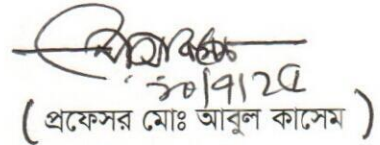 ৩০/৭/২৫
( প্রফেসর মোঃ আবুল কাসেম )